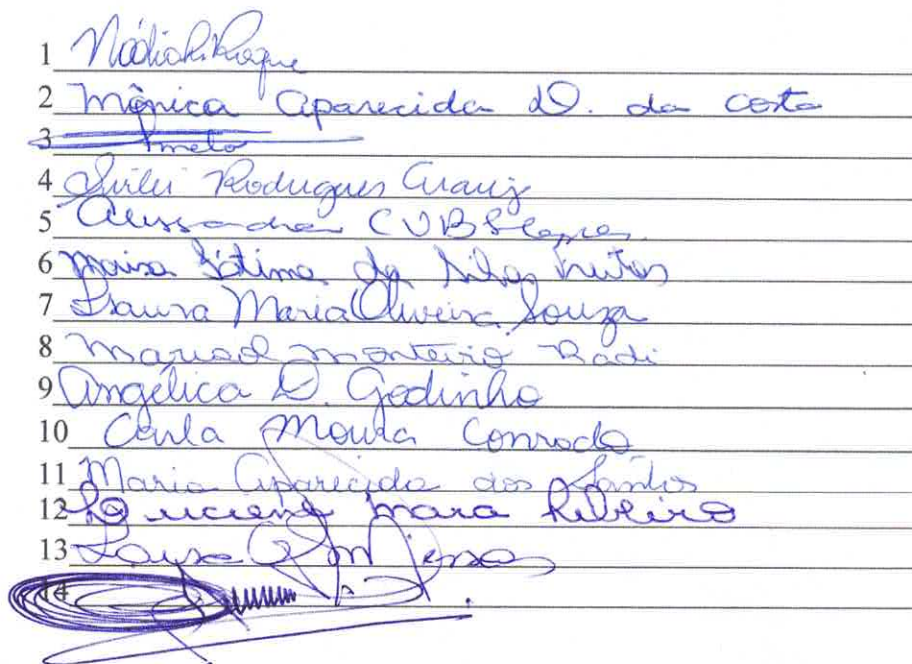 1 Nádia R. Roque
2 Mônica Aparecida D. da Costa
3 Melo
4 Sirlei Rodrigues Araujo
5 Alessandra C V B
6 Maisa Fátima da Silva Freitas
7 Laura Maria Oliveira Souza
8 Marisol Monteiro Radi
9 Angélica D. Godinho
10 Carla Moura Conrado
11 Maria Aparecida dos Santos
12 Luciene Mara Ribeiro
13
14